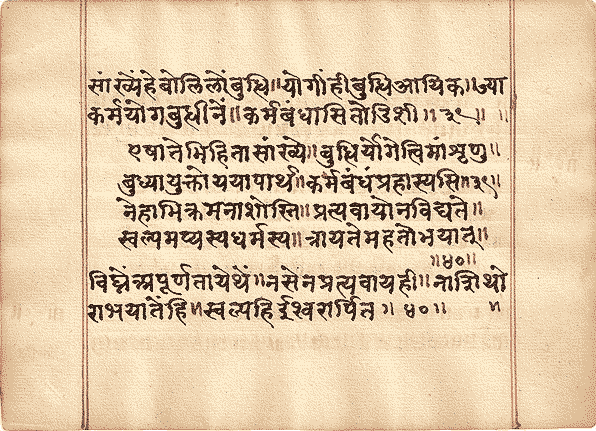 सांख्येंहेबोलिलोंबुधि॥योगींहीबुधिआयिक॥ज्या
कर्मयोगबुधीनें॥कर्मबंधासितोडिशी॥३९॥
एषातेभिहितासांख्ये॥बुधिर्योगेत्विमांशृणु
बुध्यायुक्तोययापार्थ॥कर्मबंधंप्रहास्यसि॥३९
नेहाभिक्रमनाशोस्ति॥प्रत्यवायोनविद्यते॥
स्वल्पमप्यस्यधर्मस्य॥त्रायतेमहतोभयात्॥
॥४०॥
विघ्नेंअपूर्णतायेथें॥नसेनप्रत्यवायही॥नाशिथो
राभयातेंहि॥स्वल्पहिईश्वरार्पित॥४०॥ ॥